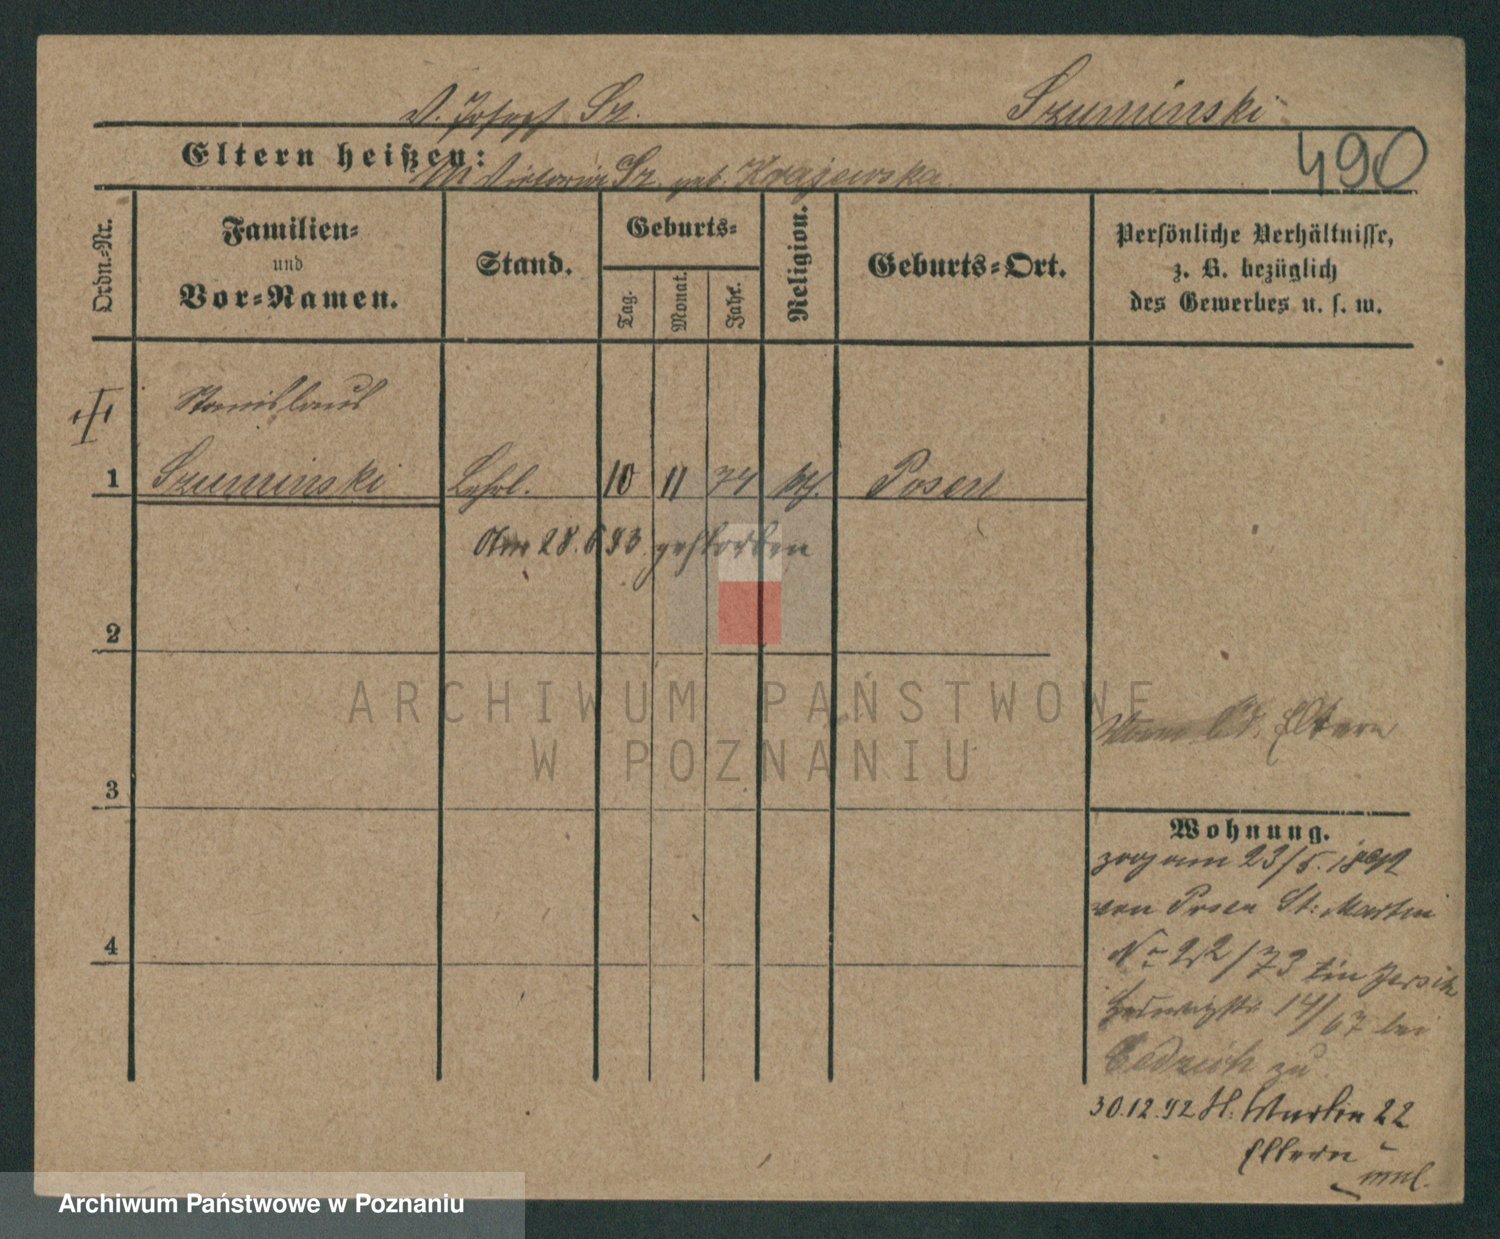 V. Joseph Sz.
Szuminski
Eltern heißen:
M Victoria Sz. geb. Krajewska
490
Ordn.-Nr.
Familien-
und
Vor-Namen.
Stand.
Geburts-
Tag.
Monat.
Jahr.
Religion.
Geburts-Ort.
Persönliche Verhältnisse,
z. B. bezüglich
des Gewerbes u. s. w.
Stanislaus
1 Szuminski Lehrl. 10 11 74 kth. Posen
Am 28.6 93 gestorben
2
ARCHIWUM PAŃSTWOWE
W POZNANIU
Eltern
3
Wohnung.
zog am 23/5. 1892
von Posen St: Martin
4
No 22/73 in Jersitz
Hedwigstr 14/67 bei
zu
30.12.92 St. Martin 22
Eltern
Archiwum Państwowe w Poznaniu